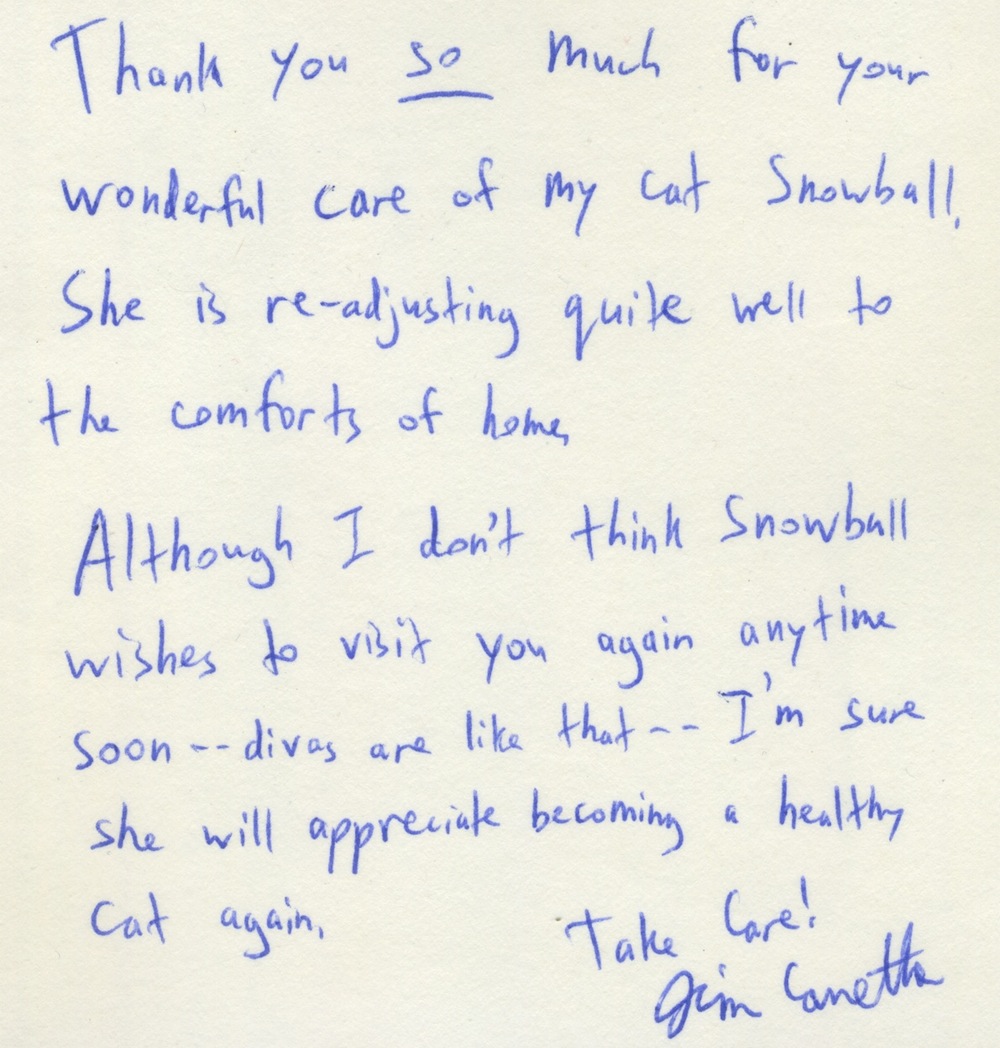 Thank you so much for your
wonderful care of my cat Snowball.
She is re-adjusting quite well to
the comforts of home.
Although I don't think Snowball
wishes to visit you again anytime
soon--divas are like that-- I'm sure
she will appreciate becoming a healthy
cat again.
Take Care!
Jim